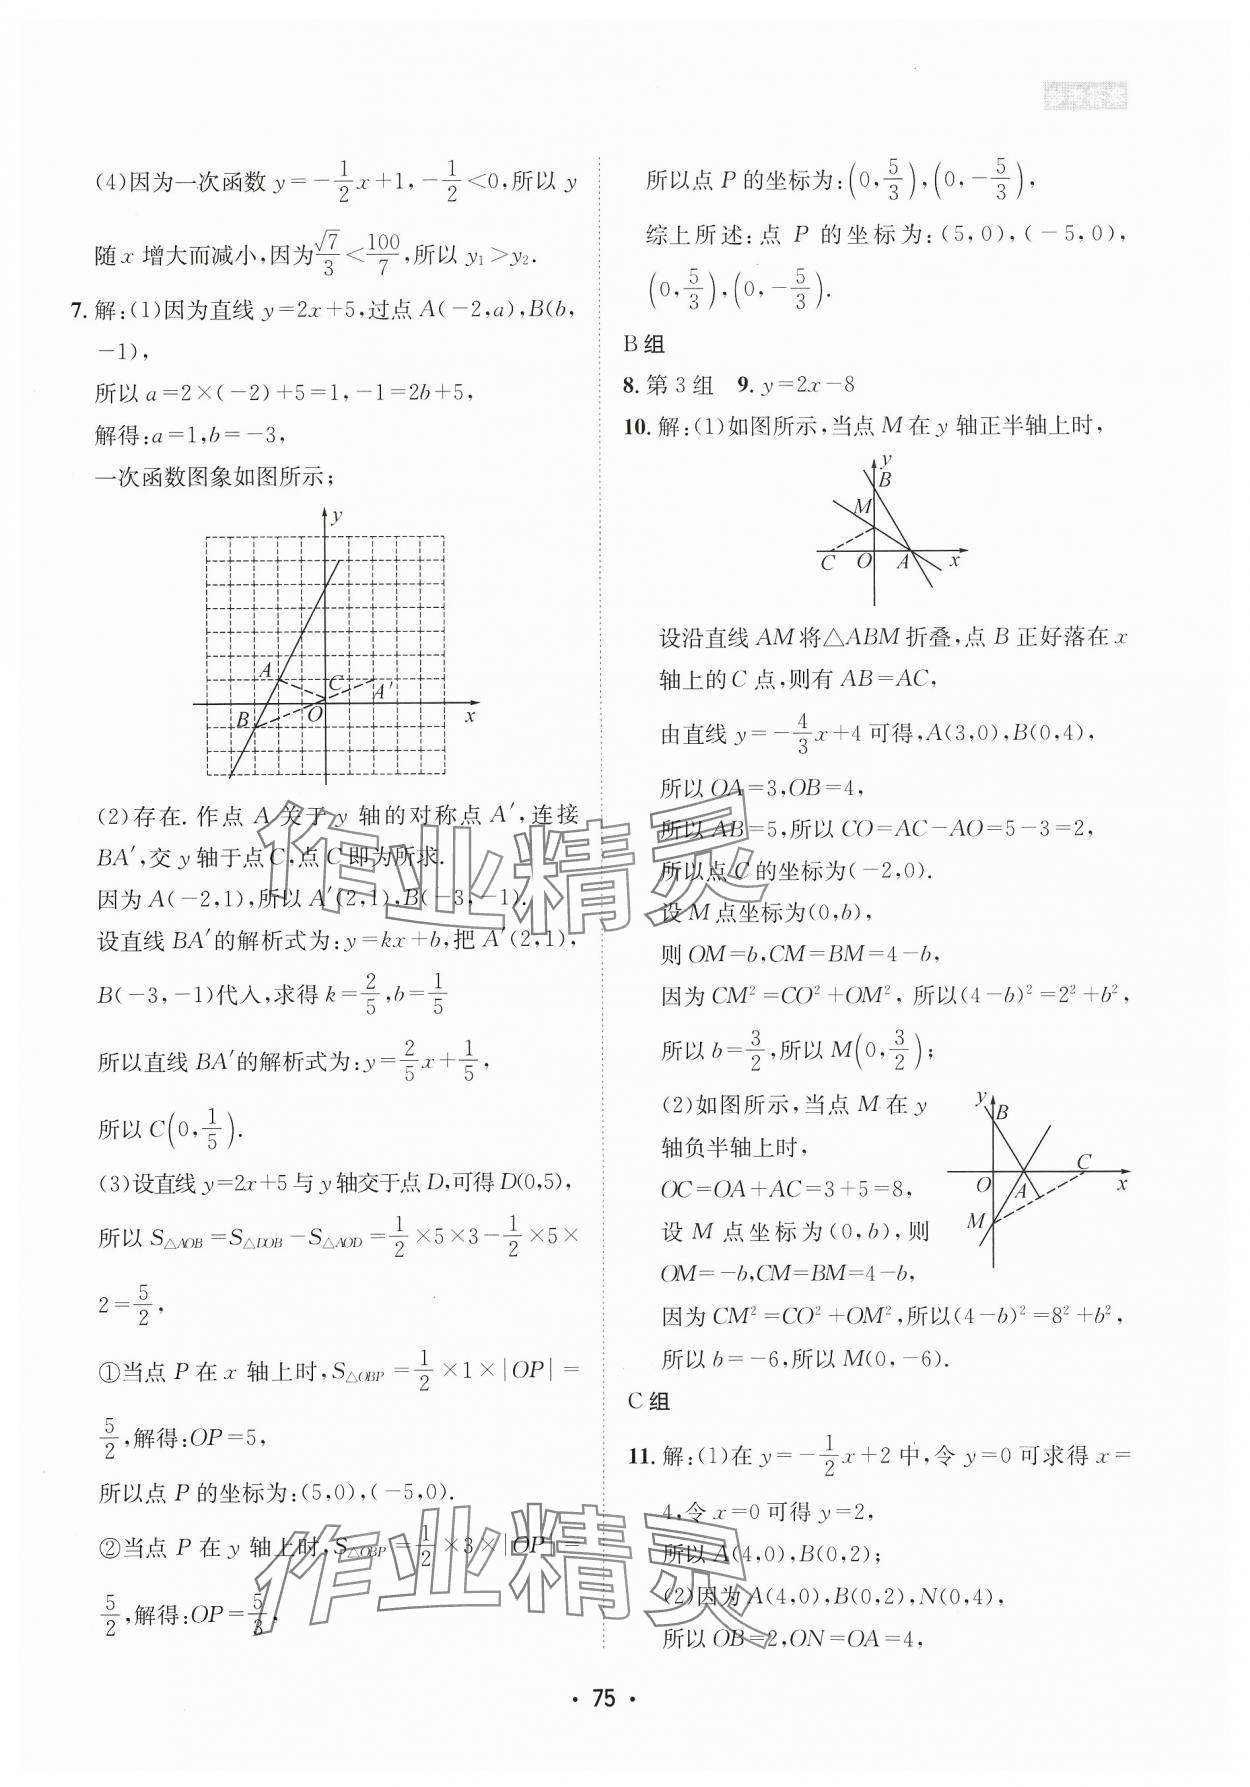 参考答案
(4)因为一次函数 y=-1/2x+1,-1/2<0,所以 y
随 x 增大而减小,因为√7/3<100/7,所以 y₁>y₂.
7. 解:(1)因为直线 y=2x+5,过点 A(-2,a),B(b,
-1),
所以 a=2×(-2)+5=1,-1=2b+5,
解得:a=1,b=-3,
一次函数图象如图所示;
y
A
C
A′
B
O
x
(2)存在. 作点 A 关于 y 轴的对称点 A′,连接
BA′,交 y 轴于点 C,点 C 即为所求.
因为 A(-2,1),所以 A′(2,1),B(-3,-1).
设直线 BA′的解析式为:y=kx+b,把 A′(2,1),
B(-3,-1)代入,求得 k=2/5,b=1/5
所以直线 BA′的解析式为:y=2/5x+1/5,
所以 C(0,1/5).
(3)设直线 y=2x+5 与 y 轴交于点 D,可得 D(0,5),
所以 S△AOB=S△DOB-S△AOD=1/2×5×3-1/2×5×
2=5/2,
①当点 P 在 x 轴上时,S△OBP=1/2×1×|OP|=
5/2,解得:OP=5,
所以点 P 的坐标为:(5,0),(-5,0).
②当点 P 在 y 轴上时,S△OBP=1/2×3×|OP|=
5/2,解得:OP=5/3,
所以点 P 的坐标为:(0,5/3),(0,-5/3),
综上所述:点 P 的坐标为:(5,0),(-5,0),
(0,5/3),(0,-5/3).
B 组
8. 第 3 组 9. y=2x-8
10. 解:(1)如图所示,当点 M 在 y 轴正半轴上时,
y
B
M
C O A x
设沿直线 AM 将△ABM 折叠,点 B 正好落在 x
轴上的 C 点,则有 AB=AC,
由直线 y=-4/3x+4 可得,A(3,0),B(0,4),
所以 OA=3,OB=4,
所以 AB=5,所以 CO=AC-AO=5-3=2,
所以点 C 的坐标为(-2,0).
设 M 点坐标为(0,b),
则 OM=b,CM=BM=4-b,
因为 CM²=CO²+OM²,所以(4-b)²=2²+b²,
所以 b=3/2,所以 M(0,3/2);
(2)如图所示,当点 M 在 y
轴负半轴上时,
OC=OA+AC=3+5=8,
设 M 点坐标为(0,b),则
OM=-b,CM=BM=4-b,
y
B
C
O A x
M
因为 CM²=CO²+OM²,所以(4-b)²=8²+b²,
所以 b=-6,所以 M(0,-6).
C 组
11. 解:(1)在 y=-1/2x+2 中,令 y=0 可求得 x=
4,令 x=0 可得 y=2,
所以 A(4,0),B(0,2);
(2)因为 A(4,0),B(0,2),N(0,4),
所以 OB=2,ON=OA=4,
作业精灵
作业精灵
· 75 ·